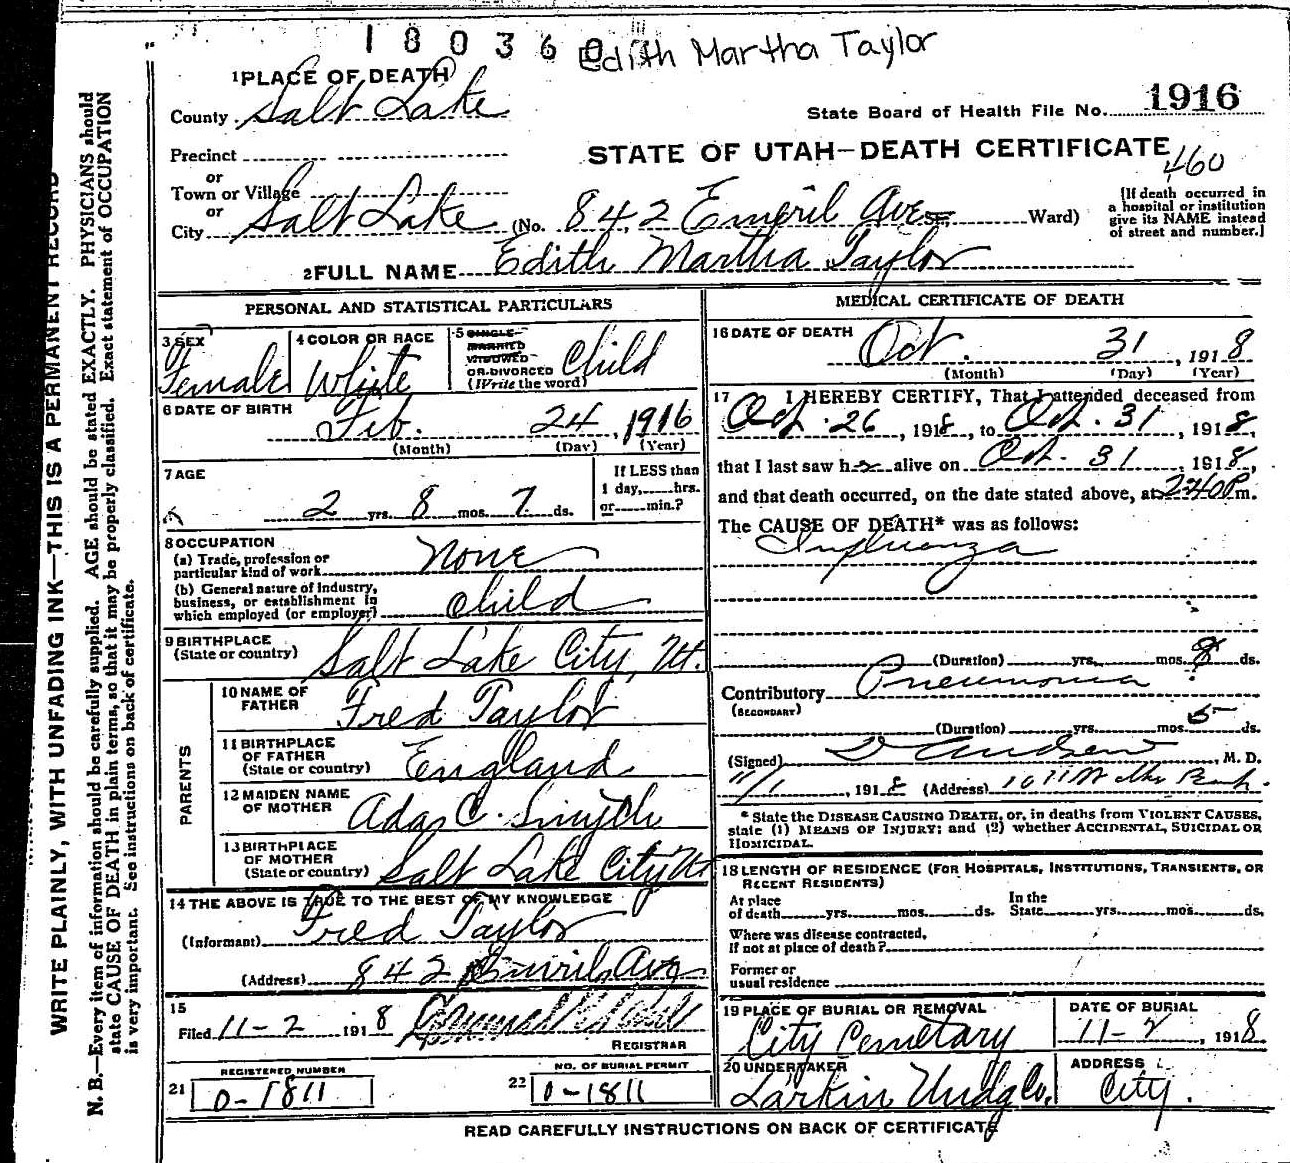 180360 Edith Martha Taylor
1 PLACE OF DEATH
County Salt Lake
State Board of Health File No. 1916
Precinct
STATE OF UTAH—DEATH CERTIFICATE
460
or
Town or Village
or
City Salt Lake (No. 842 Emeril Ave. Ward)
[If death occurred in
a hospital or institution
give its NAME instead
of street and number.]
2 FULL NAME Edith Martha Taylor
PERSONAL AND STATISTICAL PARTICULARS
3 SEX Female
4 COLOR OR RACE White
5 SINGLE
MARRIED
WIDOWED
OR DIVORCED Child
(Write the word)
6 DATE OF BIRTH
Feb. 24, 1916
(Month) (Day) (Year)
7 AGE
2 yrs. 8 mos. 7 ds.
If LESS than
1 day, hrs.
or min.?
8 OCCUPATION
(a) Trade, profession or
particular kind of work None
(b) General nature of industry,
business, or establishment in
which employed (or employer) Child
9 BIRTHPLACE
(State or country) Salt Lake City, Ut.
PARENTS
10 NAME OF
FATHER Fred Taylor
11 BIRTHPLACE
OF FATHER
(State or country) England
12 MAIDEN NAME
OF MOTHER Ada C. Smyth
13 BIRTHPLACE
OF MOTHER
(State or country) Salt Lake City Ut
14 THE ABOVE IS TRUE TO THE BEST OF MY KNOWLEDGE
(Informant) Fred Taylor
(Address) 842 Emeril Ave
15
Filed 11-2 1918
REGISTRAR
REGISTERED NUMBER
21 0-1811
NO. OF BURIAL PERMIT
22 0-1811
MEDICAL CERTIFICATE OF DEATH
16 DATE OF DEATH
Oct. 31, 1918
(Month) (Day) (Year)
17 I HEREBY CERTIFY, That I attended deceased from
Oct. 26, 1918, to Oct. 31, 1918,
that I last saw her alive on Oct. 31, 1918,
and that death occurred, on the date stated above, at 2:40 P m.
The CAUSE OF DEATH* was as follows:
Influenza
(Duration) yrs. mos. 8 ds.
Contributory Pneumonia
(SECONDARY)
(Duration) yrs. mos. 5 ds.
(Signed) M. D.
11/1, 1918 (Address) 1011 Bank
* State the DISEASE CAUSING DEATH, or, in deaths from VIOLENT CAUSES,
state (1) MEANS OF INJURY; and (2) whether ACCIDENTAL, SUICIDAL OR
HOMICIDAL.
18 LENGTH OF RESIDENCE (FOR HOSPITALS, INSTITUTIONS, TRANSIENTS, OR
RECENT RESIDENTS)
At place
of death yrs. mos. ds.
In the
State yrs. mos. ds.
Where was disease contracted,
If not at place of death?
Former or
usual residence
19 PLACE OF BURIAL OR REMOVAL
City Cemetary
DATE OF BURIAL
11-2, 1918
20 UNDERTAKER
Larkin Undg Co.
ADDRESS
City.
READ CAREFULLY INSTRUCTIONS ON BACK OF CERTIFICATE
WRITE PLAINLY, WITH UNFADING INK—THIS IS A PERMANENT RECORD
N. B.—Every item of information should be carefully supplied. AGE should be stated EXACTLY. PHYSICIANS should
state CAUSE OF DEATH in plain terms, so that it may be properly classified. Exact statement of OCCUPATION
is very important. See instructions on back of certificate.